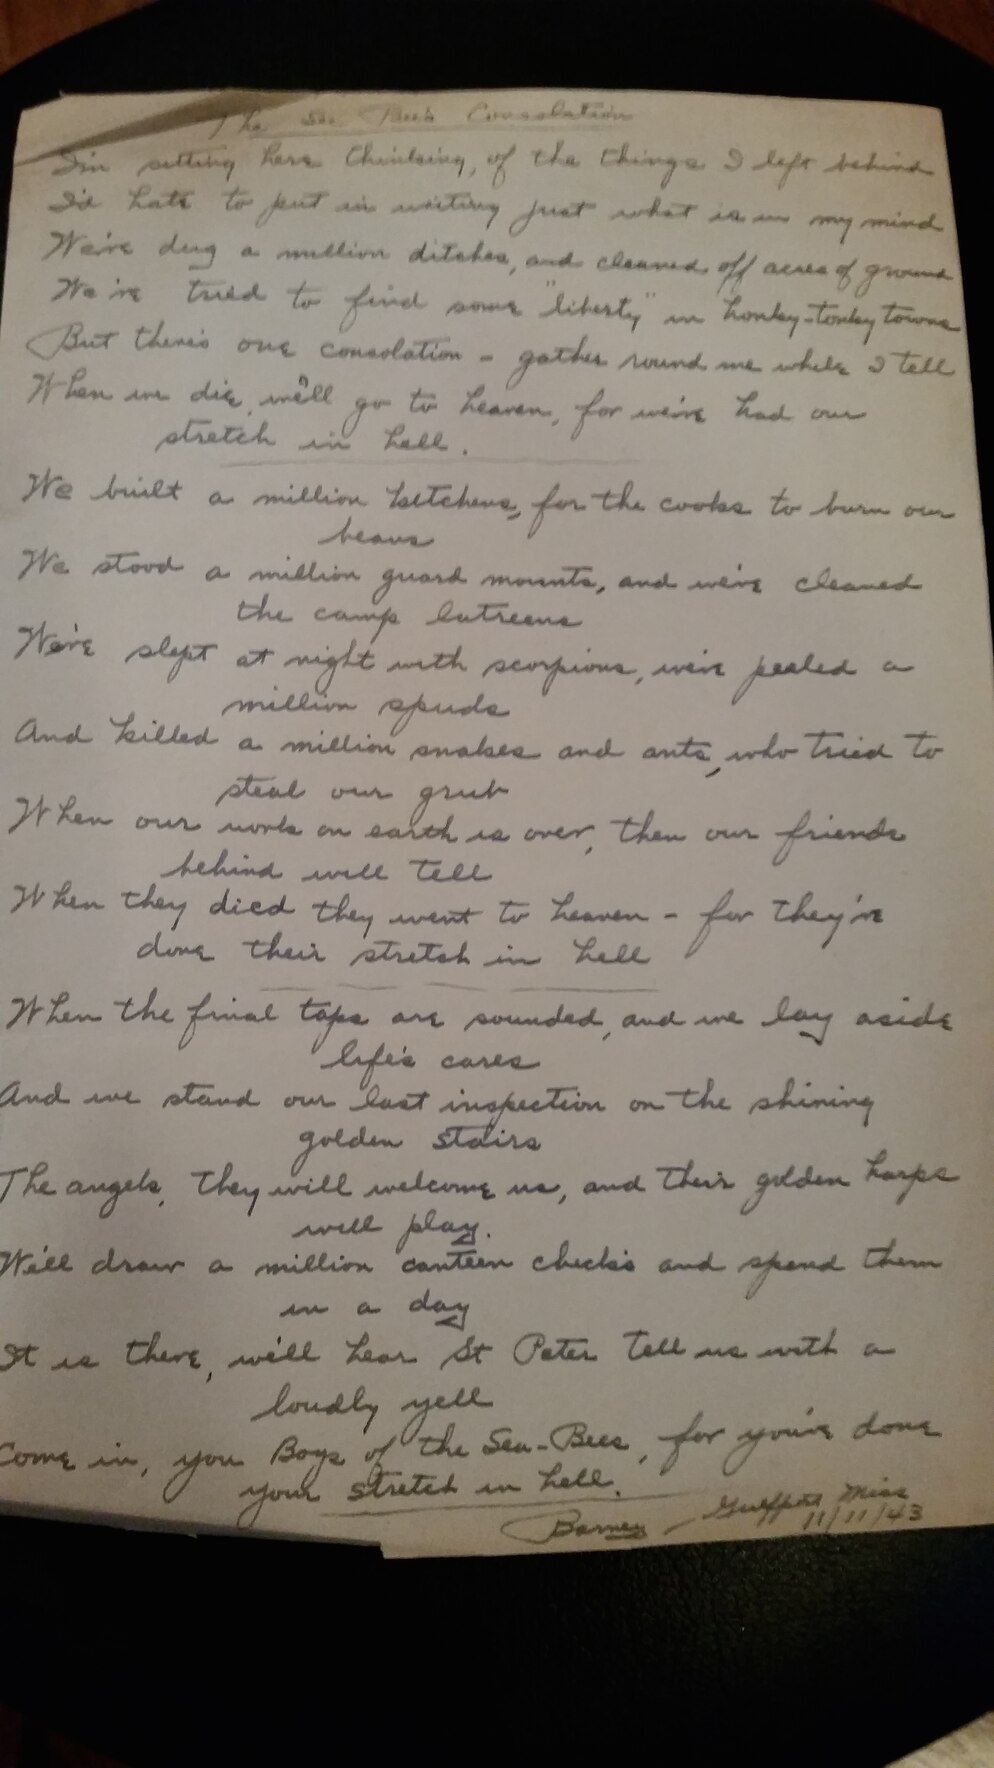 The Sea Bee's Consolation
I'm sitting here thinking, of the things I left behind
I'd hate to put in writing just what is in my mind
We've dug a million ditches, and cleaned off acres of ground
We've tried to find some "liberty" in honky-tonky towns
But there's one consolation - gather round me while I tell
When we die, we'll go to heaven, for we've had our
stretch in hell.
We built a million kitchens, for the cooks to burn our
beans
We stood a million guard mounts, and we've cleaned
the camp latreens
We've slept at night with scorpions, we've pealed a
million spuds
And killed a million snakes and ants, who tried to
steal our grub
When our work on earth is over, then our friends
behind will tell
When they died they went to heaven - for they've
done their stretch in hell
When the final taps are sounded, and we lay aside
life's cares
And we stand our last inspection on the shining
golden stairs
The angels, they will welcome us, and their golden harps
will play.
We'll draw a million canteen checks and spend them
in a day
It is there, we'll hear St Peter tell us with a
loudly yell
Come in, you Boys of the Sea-Bees, for you've done
your stretch in hell.
Barney - Gulfport, Miss
11/11/43